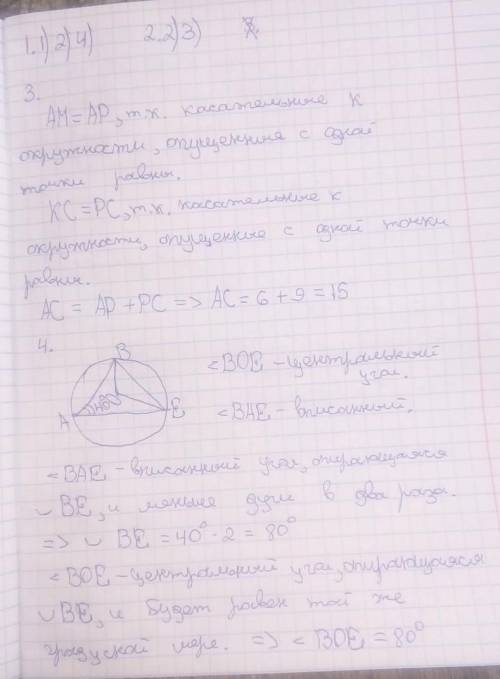 1.1) 2) 4)   2.2) 3)
3.
AM = AP, т.к. касательные к
окружности, опущенные с одной
точки равны.
KC = PC, т.к. касательные к
окружности, опущенные с одной точки
равны.
AC = AP + PC => AC = 6 + 9 = 15
4.
B
A
E
<BOE - центральный
угол.
<BAE - вписанный.
<BAE - вписанный угол, опирающаяся
◡ BE, и меньше дуги в два раза.
=> ◡ BE = 40° · 2 = 80°
<BOE - центральный угол, опирающаяся
◡ BE, и будет равен той же
градусной мере. => <BOE = 80°